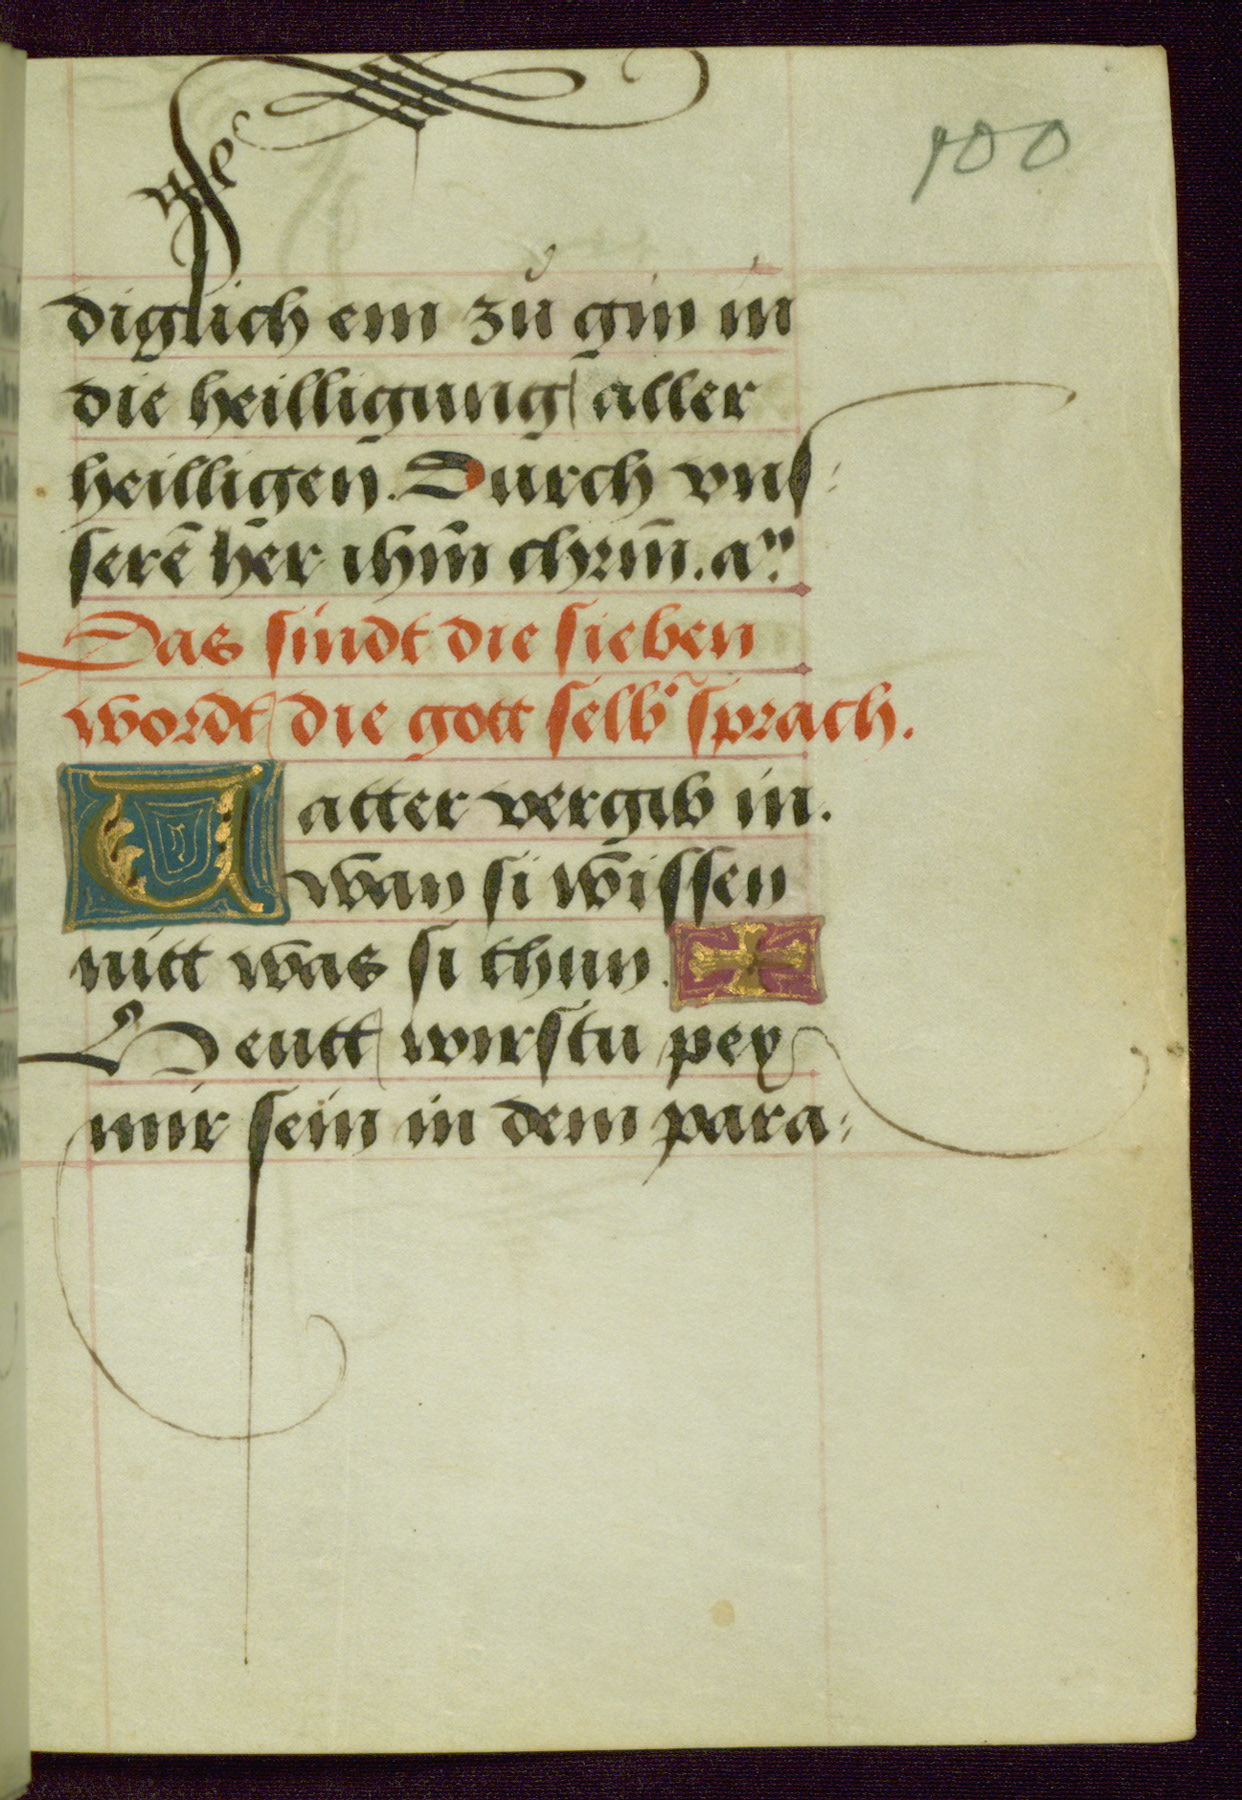 100
diglich ein zů gin in
die heilligung aller
heilligen. Durch vns⸗
serē hēr ihm̄ chr̄m̄. a"
Das sindt die sieben
wordt die gott selbʼ sprach.
Vatter vergib in.
wan si wissen
nitt was si thun.
Heutt wirstu pey
mir sein in dem para⸗